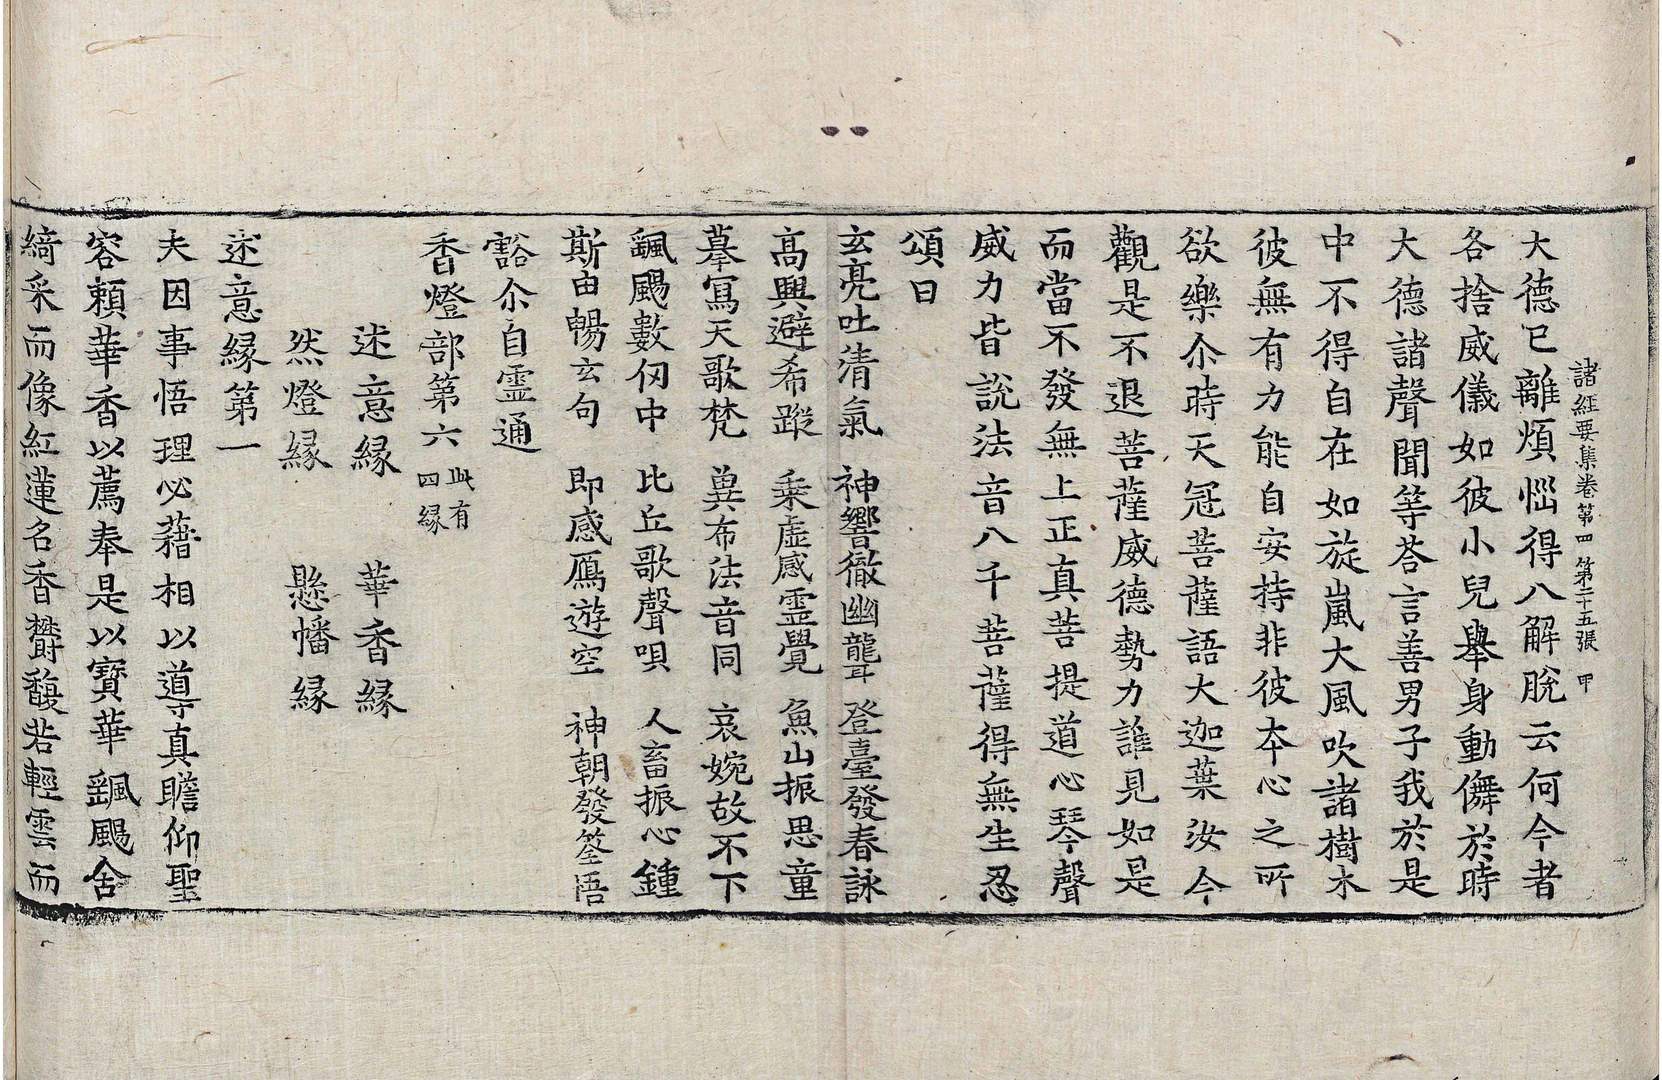 諸經要集卷第四 第二十五張 甲
大德已離煩惱得八解脫云何今者
各捨威儀如彼小兒舉身動儛於時
大德諸聲聞等荅言善男子我於是
中不得自在如旋嵐大風吹諸樹木
彼無有力能自安持非彼夲心之所
欲樂尒時天冠菩薩語大迦葉汝今
觀是不退菩薩威德勢力誰見如是
而當不發無上正真菩提道心琴聲
威力皆說法音八千菩薩得無生忍
頌曰
玄亮吐清氣 神響徹幽聾 登臺發春詠
高興避希蹤 乗虛感靈覺 魚山振思童
摹寫天歌梵 冀布法音同 哀婉故不下
飄颺數仞中 比丘歌聲唄 人畜振心鍾
斯由暢玄句 即感鴈遊空 神朝發筌悟
豁尒自靈通
香燈部第六 此有四縁
述意縁 華香縁
然燈縁 懸幡縁
述意縁第一
夫因事悟理必藉相以導真瞻仰聖
容頼華香以薦奉是以寶華飄颺舍
綺采而像紅蓮名香欝馥若輕雲而